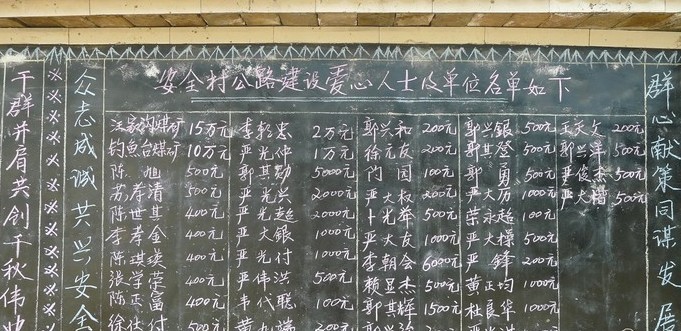 安全村公路建设爱心人士及单位名单如下
干群并肩共创千秋伟
众志成诚共兴安全
汪家沟煤矿 15万元
钓鱼台煤矿 10万元
陈旭 500元
苏孝清 500元
陈世其 400元
李孝金 400元
陈琪瑛 400元
张学荣 400元
陈正富 400元
徐仕付
李朝忠 2万元
严光仲 1万元
郭其勋 5000元
严光兴 2000元
严光超 2000元
严大银 1000元
严光付 1000元
严伟洪 500元
韦代聪 100元
郭兴和 200元
徐元友 200元
闵园 100元
严大权 200元
卜光举 500元
严大友 1000元
李朝会 6000元
赖昱杰 500元
郭其辉 1500元
郭兴银 500元
郭其登 500元
郭勇 500元
严大历 1000元
荣永超 100元
严大操 500元
严锋 200元
黄正均 1000元
杜良华
王天文 200元
郭兴洋 500元
严俊杰 500元
严大楷 500元
群心献策同谋发展